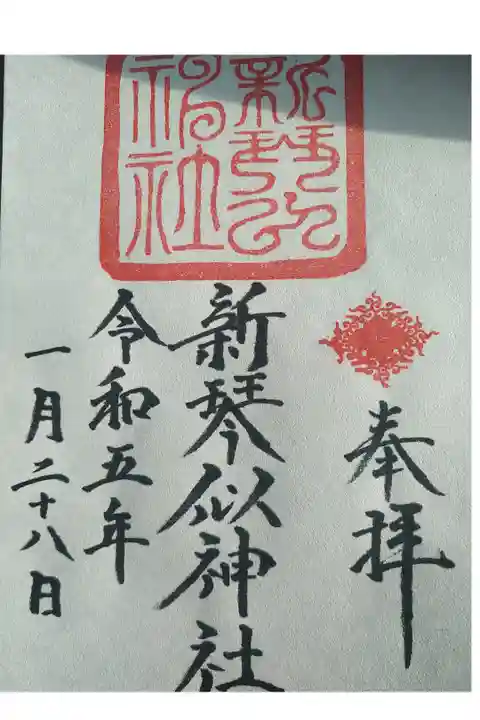 奉拝
新琴似神社
令和五年
一月二十八日
新琴似
神社